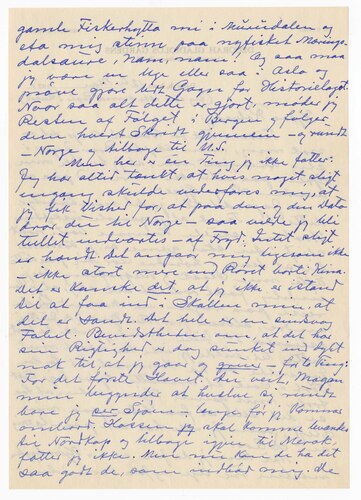 gamle Fiskerhytta mi i Mürisdalen og
eta mig stinn paa nyfisket Møringe
dalsaure, Nam, nam! Og saa maa
jeg være en Uge eller saa i Oslo og
prøve gjøre lidt Gagn for Historielaget.
Naar saa alt dette er gjort, møder jeg
Resten af Følget i Bergen og følger
dem hvert Skridt gjennem - og rundt
- Norge og tilbage til U.S.
Men her er en Ting jeg ikke fatter:
Jeg har altid tænkt, at hvis noget sligt
ingang skulde vederfares mig, at
jeg fik Vished for, at paa den og den Dato
drar du til Norge - saa vilde jeg bli
tullet indvortes - af Fryd. Intet sligt
er hændt. Det angaar mig ligesom ikke
- ikke stort mere end Paaret borti Kina.
Det er kanske det, at jeg ikke er istand
til at faa ind i Skallen min, at
det er Sandt. Det hele er en
Fabel. Bevidstheden om, at det har
sin Rigtighed er dog sunket ind dybt
nok til, at jeg gaar og - for to Ting:
For det første Havet. Du veit, Magan
min begynder at huske sig rundt
bare jeg ser Sjøen - længe før jeg kommer
ombord. Hossen jeg skal komme levandes
til Nordkap og tilbage igjen til Merok,
fatter jeg ikke. Men min kan de ha det
saa godt de, som indbød mig, de